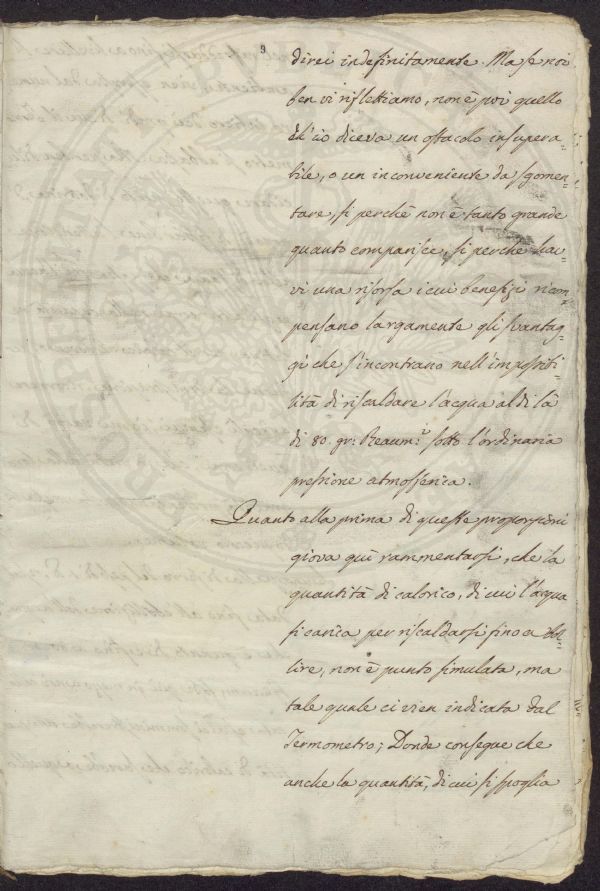 9
direi indefinitamente. Ma se noi
ben vi riflettiamo, non è poi quello
ch'io diceva un ostacolo insupera=
bile, o un inconveniente da sgomen=
tare, sì perchè non è tanto grande
quanto comparisce, sì perchè hav=
vi una risorsa i cui benefizj ricom=
pensano largamente gli svantag=
gi che s'incontrano nell'impossibi=
lità di riscaldare l'acqua al di là
di 80. gr: Reaum:i sotto l'ordinaria
pressione atmosferica.
Quanto alla prima di queste proporzioni
giova quì rammentarsi, che la
quantità di calorico, di cui l'acqua
si carica per riscaldarsi fino a bol=
lire, non è punto simulata, ma
tale quale ci vien indicata dal
Termometro; Donde consegue che
anche la quantità, di cui si spoglia